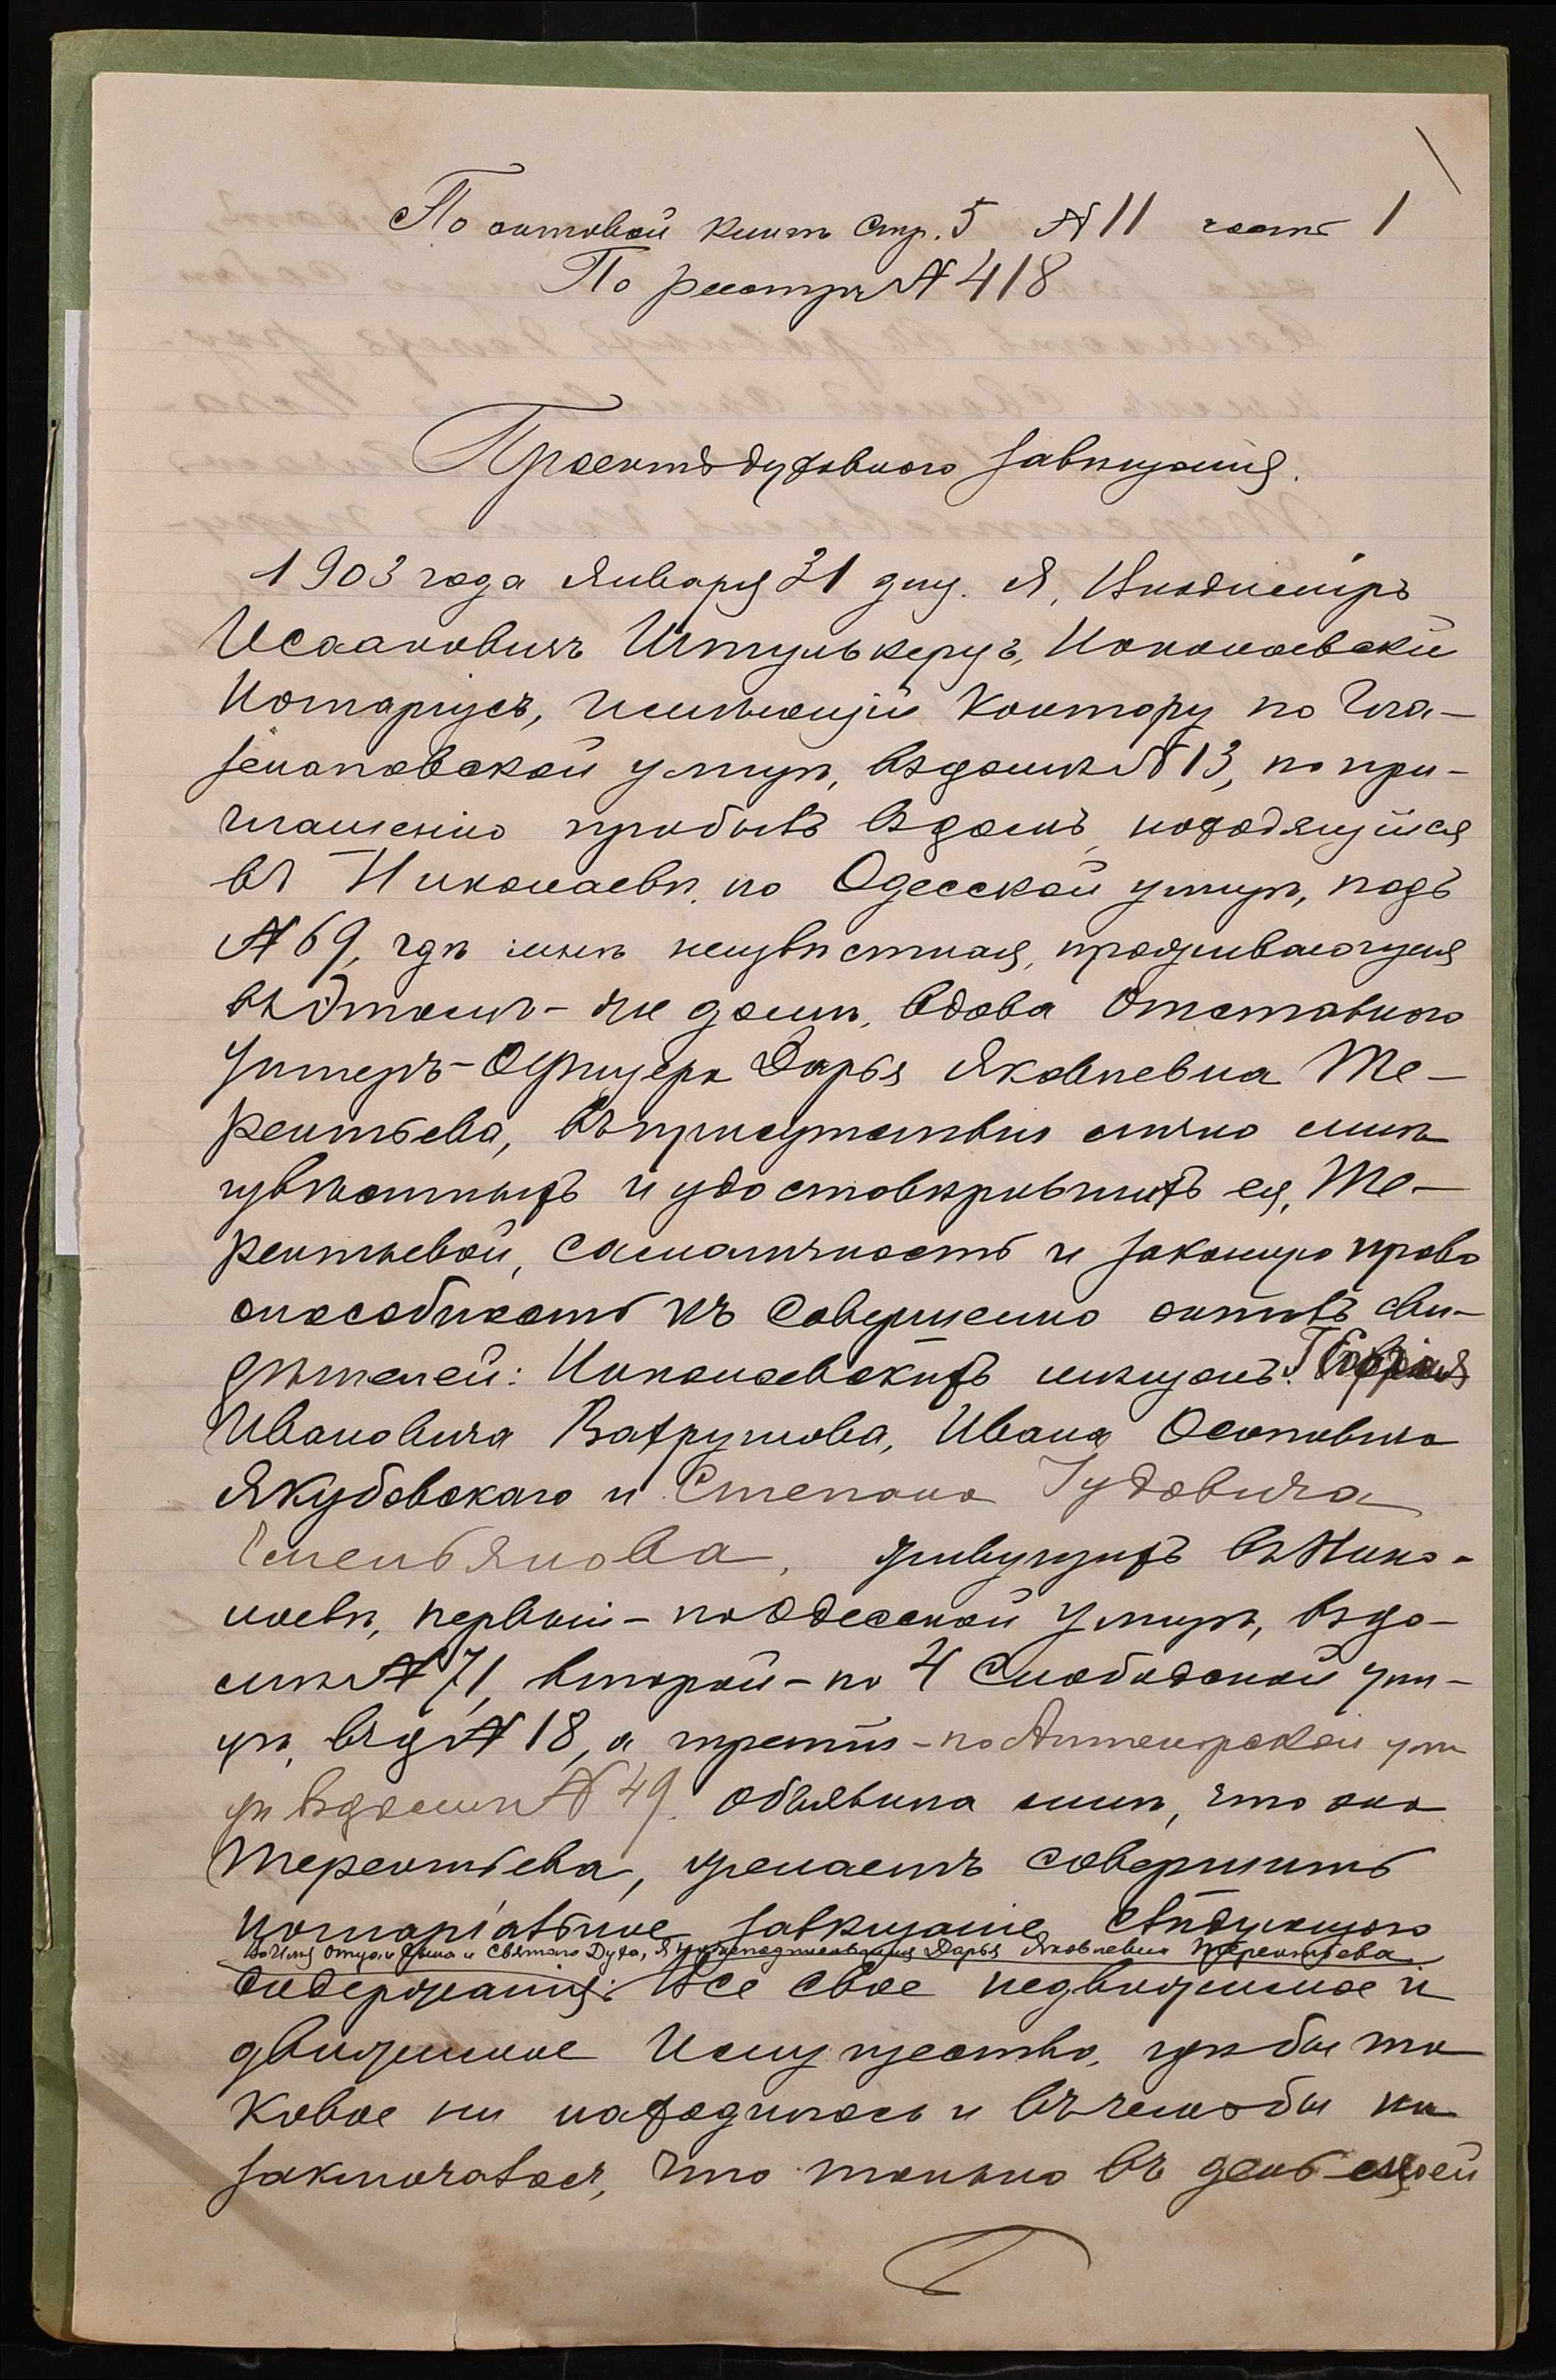 По актовой книгѣ Стр. 5 № 11 часть 1
По реестру № 418
Проектъ духовнаго завѣщанія.
1903 года Января 31 дня. Я, Владиміръ
Исааковичъ Штулькерцъ, Николаевскій
Нотаріусъ, имѣющій контору по Гла-
зенаповской улицѣ, въ домѣ № 13, по при-
глашенію прибывъ въ домъ, находящійся
въ Николаевѣ, по Одесской улицѣ, подъ
№ 69, гдѣ мнѣ неизвѣстная, проживающая
въ этомъ-же домѣ, вдова отставного
Унтеръ-Офицера Дарья Яковлевна Те-
рентьева, въ присутствіи лично мнѣ
извѣстныхъ и удостовѣрившихъ ея, Те-
рентьевой, самоличность и законную право
способность къ совершенію актовъ сви-
дѣтелей: Николаевскихъ мѣщанъ:
Ивановича Вахрушова, Ивана Осиповича
Якубовскаго и Степана Гудовича
Емельянова, живущихъ въ Нико-
лаевѣ, первый - по Одесской улицѣ, въ до-
мѣ № 71, второй - по 4 Слободской ули-
цѣ, въ д. № 18, а третій - по Артиллерской ули
цѣ въ домѣ № 49. объявила мнѣ, что она
Терентьева, желаетъ совершить
нотаріальное завѣщаніе слѣдующаго
Во Имя Отца и Сына и Святаго Духа, Я нижеподписавшаяся Дарья Яковлевна Терентьева
содержанія: Все свое недвижимое и
движимое имущество, гдѣ бы та
ковое ни находилось и въ чемъ бы ни
заключалось, что только въ день моей